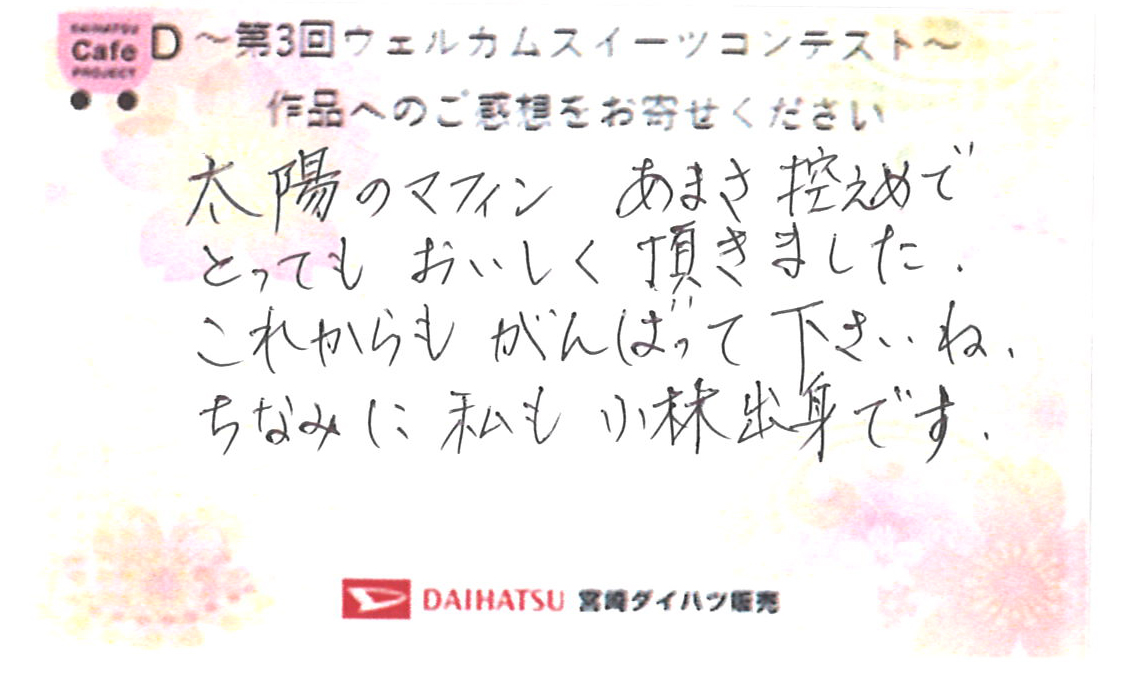 DAIHATSU
Cafe
PROJECT
D ～第3回ウェルカムスイーツコンテスト～
作品へのご感想をお寄せください
太陽のマフィン あまさ控えめで
とっても おいしく 頂きました.
これからも がんばって 下さいね、
ちなみに 私も 小林出身です.
DAIHATSU 宮崎ダイハツ販売